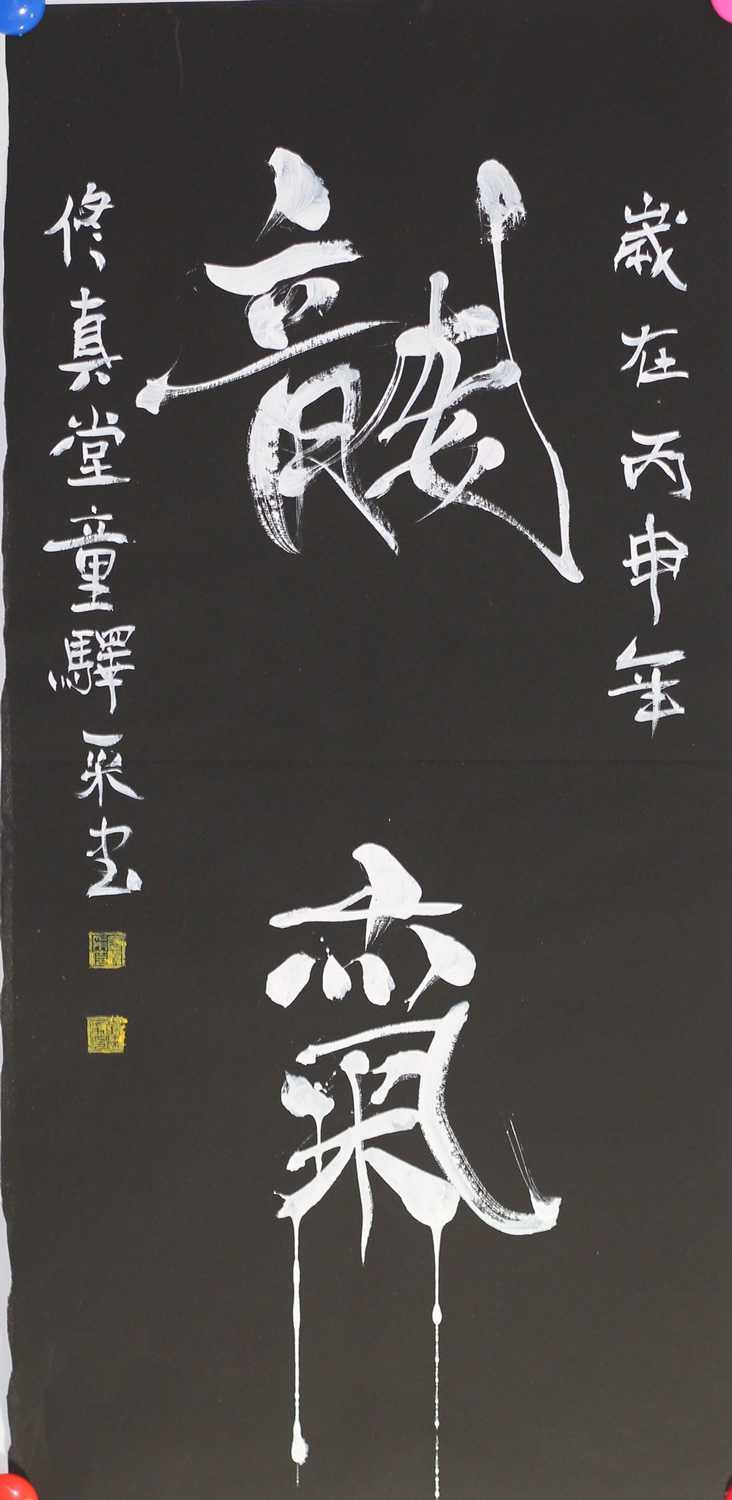 歲在丙申年
龍氣
修真堂童驛采書